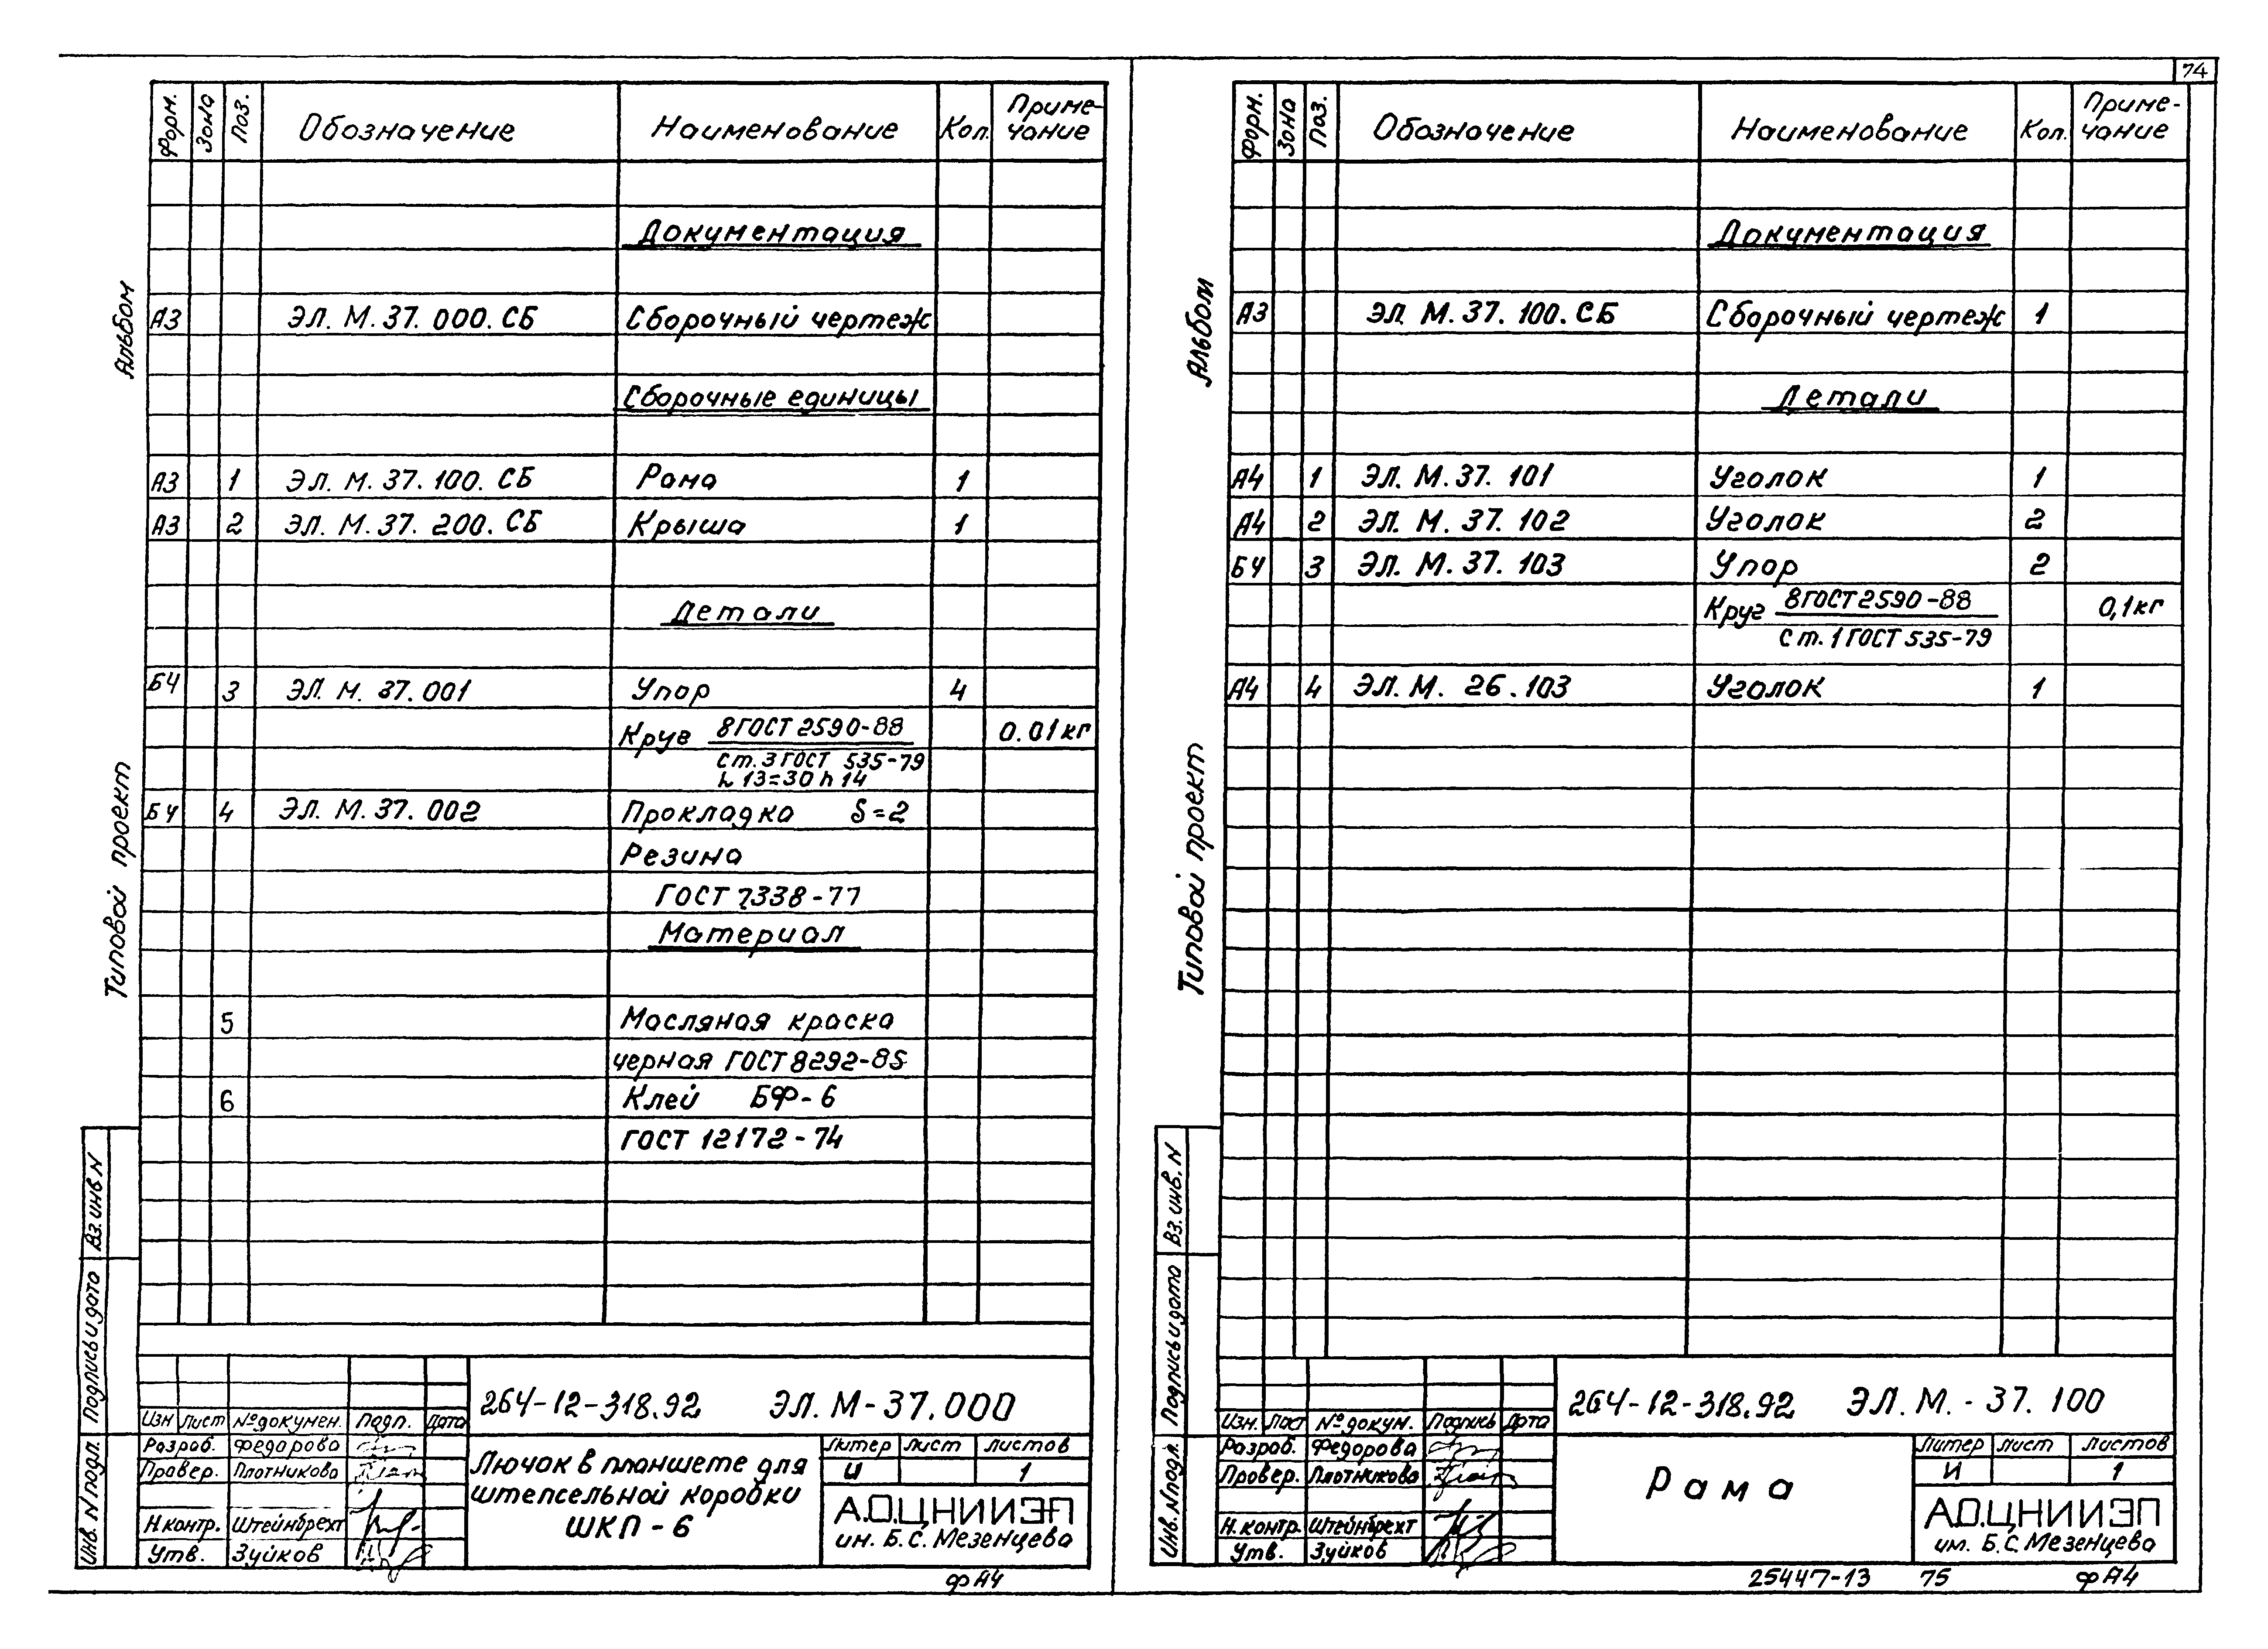 74
Форм. Зона Поз. Обозначение Наименование Кол. Приме-
чание
Документация
А3 ЭЛ. М. 37. 000. СБ Сборочный чертеж
Сборочные единицы
А3 1 ЭЛ. М. 37. 100. СБ Рама 1
А3 2 ЭЛ. М. 37. 200. СБ Крыша 1
Детали
БЧ 3 ЭЛ. М. 37.001 Упор 4
Круг 8 ГОСТ 2590-88 0.01 кг
Ст. 3 ГОСТ 535-79
L 13=30 h 14
БЧ 4 ЭЛ. М. 37. 002 Прокладка S=2
Резина
ГОСТ 7338-77
Материал
5 Масляная краска
черная ГОСТ 8292-85
6 Клей БФ-6
ГОСТ 12172-74
Альбом
Типовой проект
Вз. инв N
Подпись и дата
Инв. N подл.
264-12-318.92 ЭЛ. М-37.000
Изм Лист № докумен. Подп. Дата
Разраб. Федорова
Провер. Плотникова
Н.контр. Штейнбрехт
Утв. Зуйков
Лючок в планшете для
штепсельной коробки
ШКП-6
Литер Лист Листов
И 1
А.О.ЦНИИЭП
им. Б.С. Мезенцева
ф А4
Форм. Зона Поз. Обозначение Наименование Кол. Приме-
чание
Документация
А3 ЭЛ. М. 37. 100. СБ Сборочный чертеж 1
Детали
А4 1 ЭЛ. М. 37. 101 Уголок 1
А4 2 ЭЛ. М. 37. 102 Уголок 2
БЧ 3 ЭЛ. М. 37. 103 Упор 2
Круг 8 ГОСТ 2590-88 0,1 кг
Ст. 1 ГОСТ 535-79
А4 4 ЭЛ. М. 26.103 Уголок 1
Альбом
Типовой проект
Вз. инв. N
Подпись и дата
Инв. N подл.
264-12-318.92 ЭЛ. М. - 37. 100
Изм. Лист № докум. Подпись Дата
Разраб. Федорова
Провер. Плотникова
Н.контр. Штейнбрехт
Утв. Зуйков
Рама
Литер Лист Листов
И 1
А.О.ЦНИИЭП
им. Б.С. Мезенцева
25447-13 75 ф А4